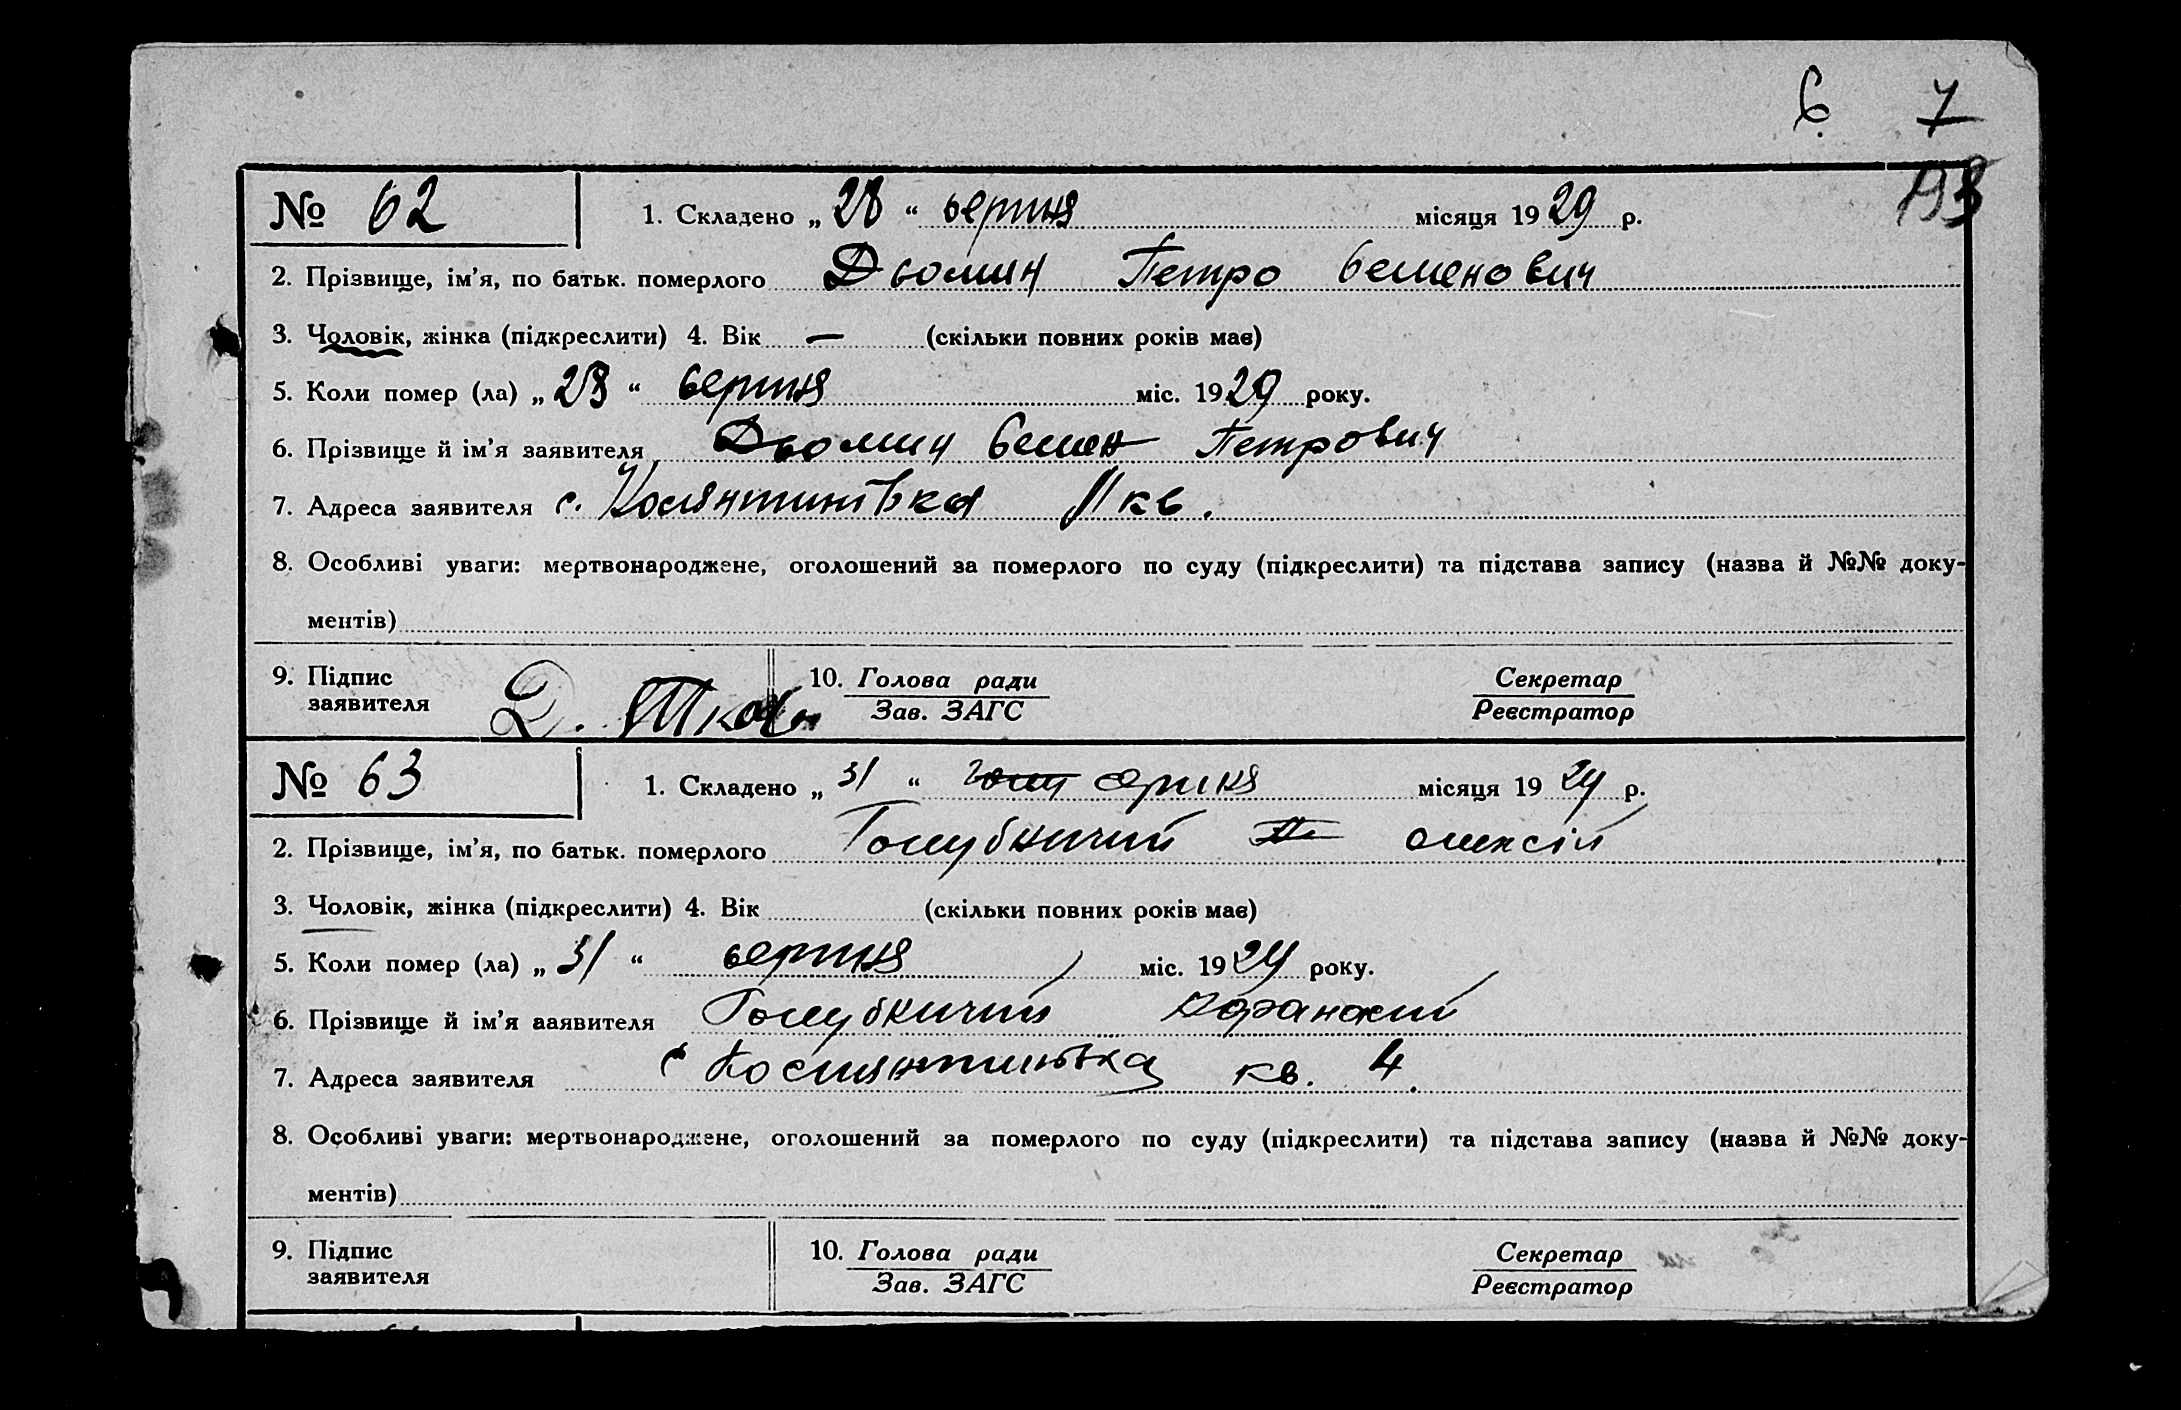 6 7
193
№ 62 1. Складено „ 28 “ серпня місяця 1929 р.
2. Прізвище, ім’я, по батьк. померлого Дьомин Петро Семенович
3. Чоловік, жінка (підкреслити) 4. Вік — (скільки повних років має)
5. Коли помер (ла) „ 28 “ серпня міс. 1929 року.
6. Прізвище й ім’я заявителя Дьомин Семен Петрович
7. Адреса заявителя с. Костянтинівка ІІ кв.
8. Особливі уваги: мертвонароджене, оголошений за померлого по суду (підкреслити) та підстава запису (назва й №№ доку-
ментів)
9. Підпис 10. Голова ради Секретар
заявителя Д. Зав. ЗАГС Реєстратор
№ 63 1. Складено „ 31 “ серпня місяця 1929 р.
2. Прізвище, ім’я, по батьк. померлого Голубничий Олексій
3. Чоловік, жінка (підкреслити) 4. Вік (скільки повних років має)
5. Коли помер (ла) „ 31 “ серпня міс. 1929 року.
6. Прізвище й ім’я заявителя Голубничий
7. Адреса заявителя с Костянтинівка кв. 4.
8. Особливі уваги: мертвонароджене, оголошений за померлого по суду (підкреслити) та підстава запису (назва й №№ доку-
ментів)
9. Підпис 10. Голова ради Секретар
заявителя Зав. ЗАГС Реєстратор